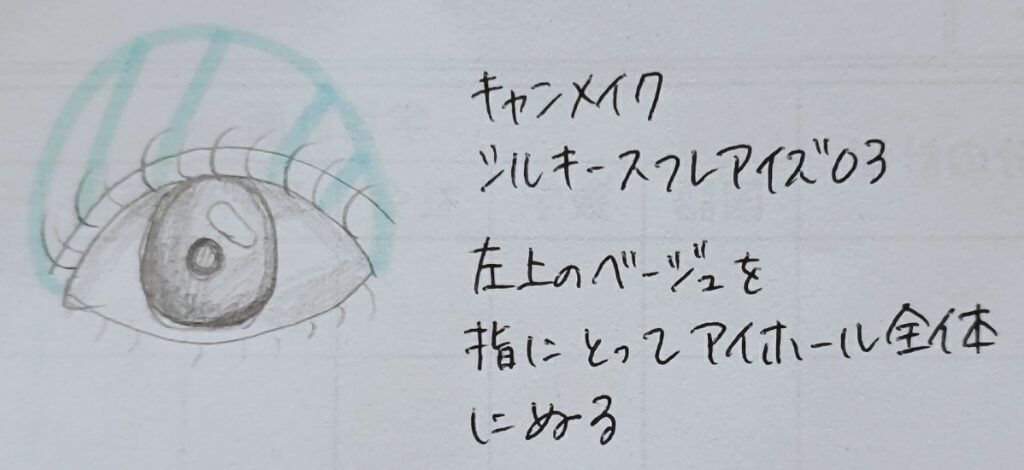 キャンメイク
シルキースフレアイズ03
左上のベージュを
指にとってアイホール全体
にぬる